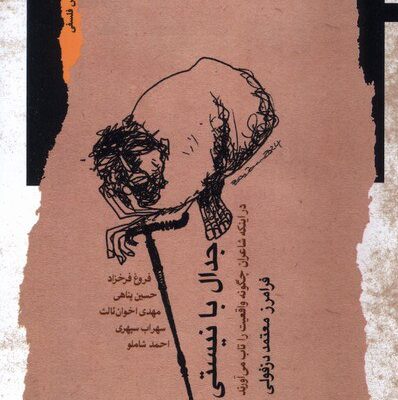 فلسفی
جدال با نیستی
در اینکه شاعران چگونه واقعیت را تاب می‌آورند
فرامرز معتمد دزفولی
فروغ فرخزاد
حسین پناهی
مهدی اخوان ثالث
سهراب سپهری
احمد شاملو